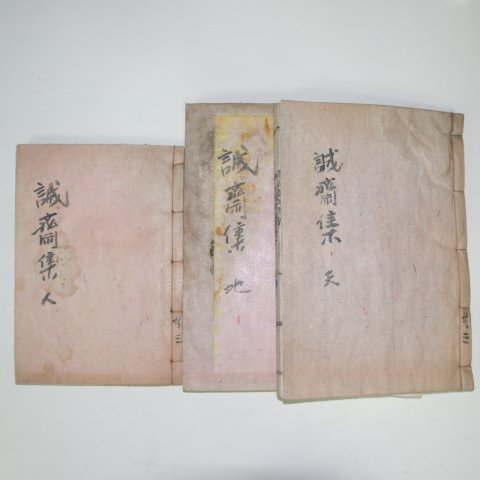 誠齋集 天
誠齋集 地
誠齋集 人
共三